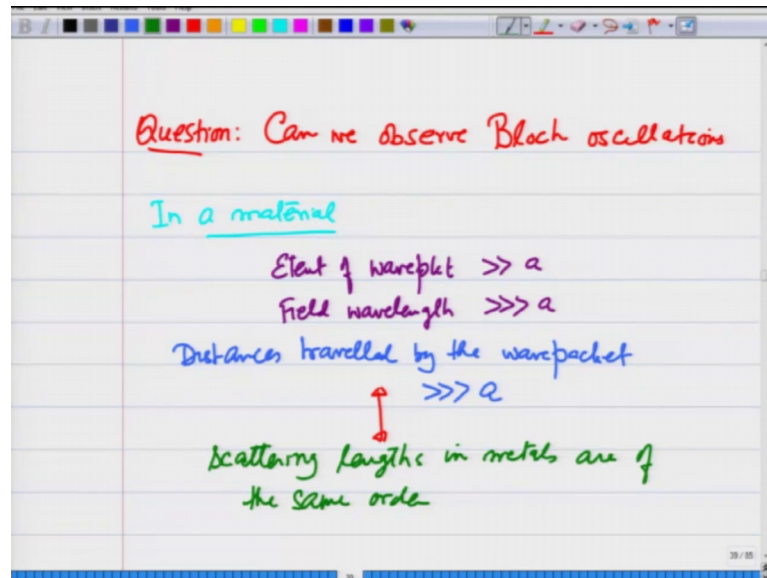 Question: Can we observe Bloch oscillations
In a material
Extent of wavepkt >> a
Field wavelength >>> a
Distances travelled by the wavepacket
>>> a
Scattering lengths in metals are of
the same order
39 / 85